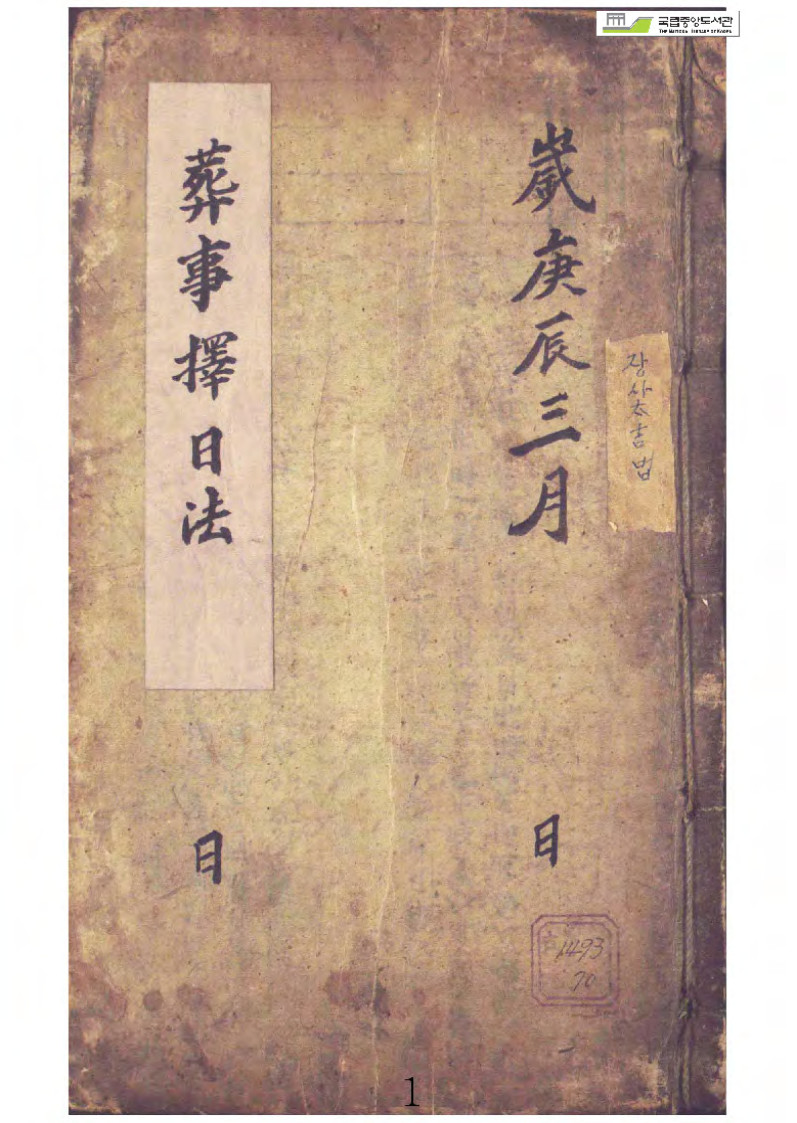 국립중앙도서관
THE NATIONAL LIBRARY OF KOREA
歲庚辰三月
日
葬事擇日法
日
장사太吉법
1493
70
1